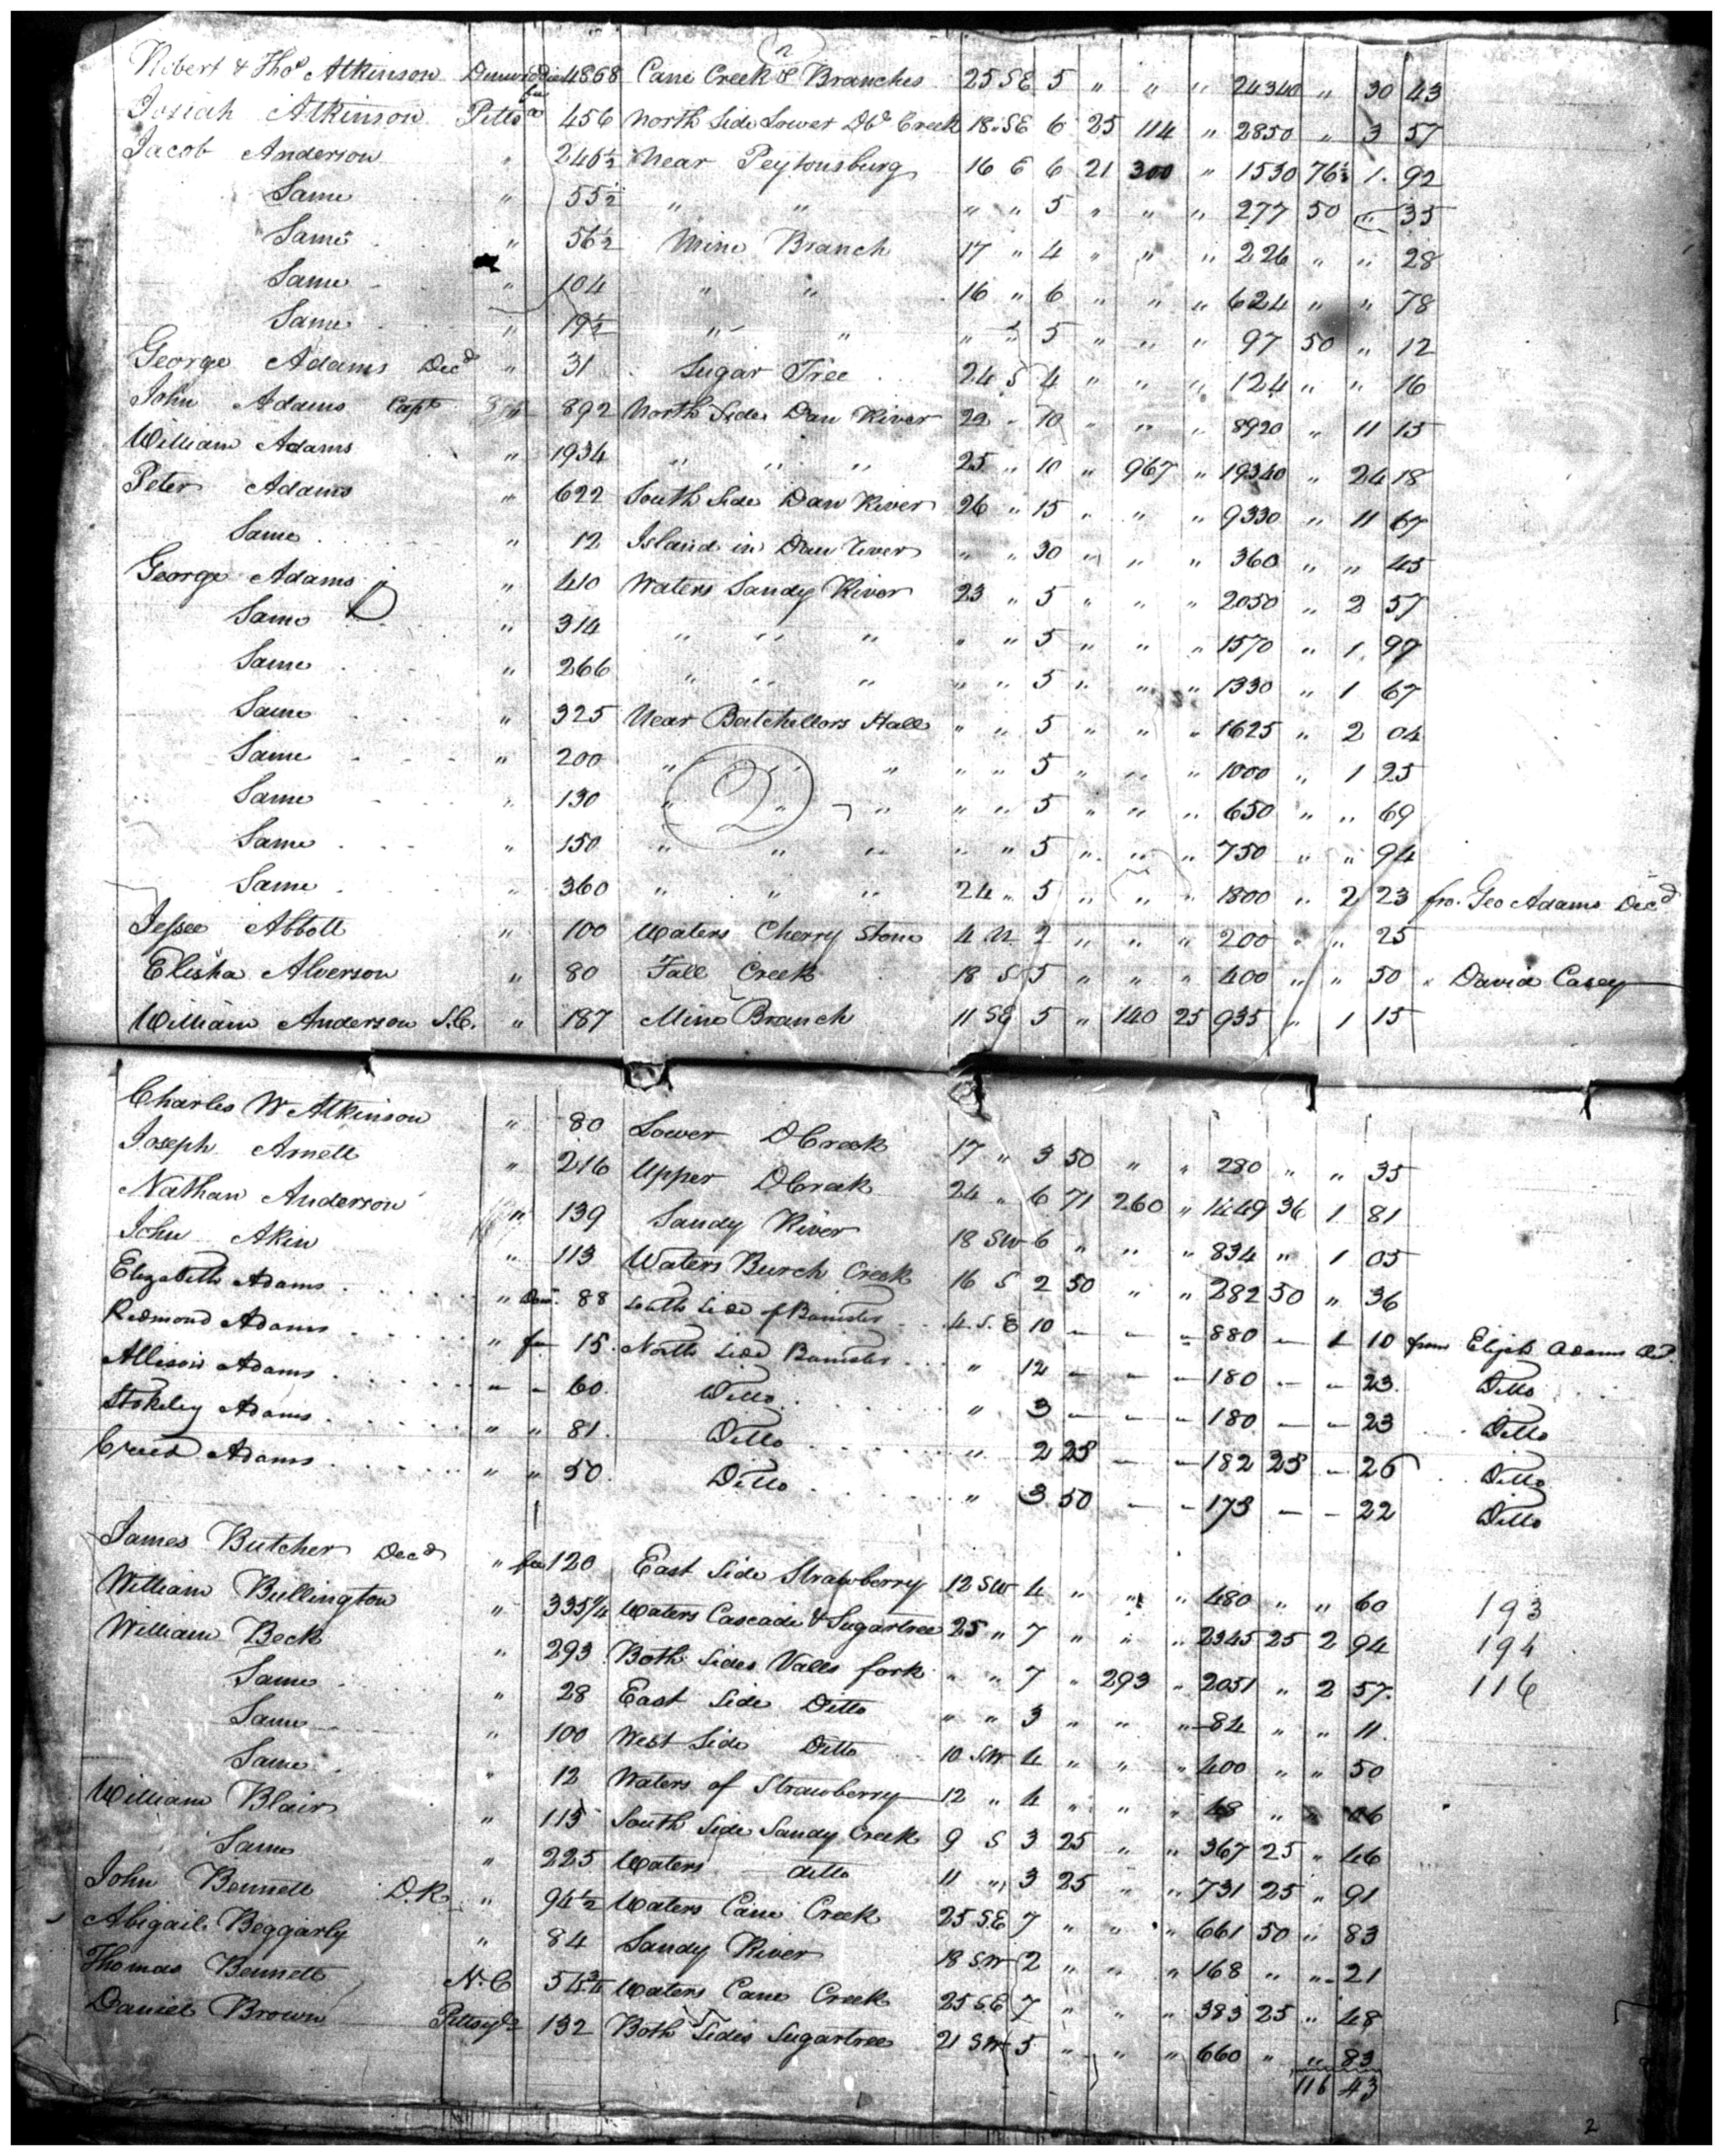 2
Robert & Tho.s Atkinson Dinwiddie fee 4868 Cane Creek & Branches 25 SE 5 " " " 24340 " 30 43
Josiah Atkinson Pitts.a 456 North Side Lower Db.e Creek 18 SE 6 25 114 " 2850 " 3 57
Jacob Anderson " 246½ Near Peytonsburg 16 E 6 21 300 " 1530 76½ 1. 92
Same " 55½ " " " " 5 " " " 277 50 " 35
Same " 56½ Mine Branch 17 " 4 " " " 226 " " 28
Same " 104 " " 16 " 6 " " " 624 " " 78
Same " 19½ " " " " 5 " " " 97 50 " 12
George Adams Decd " 31 Sugar Tree 24 S 4 " " " 124 " " 16
John Adams Capt. 892 North Side Dan River 22 " 10 " " " 8920 " 11 15
William Adams " 1934 " " " 25 " 10 " 967 " 19340 " 24 18
Peter Adams " 622 South Side Dan River 26 " 15 " " " 9330 " 11 67
Same " 12 Island in Dan River " " 30 " " " 360 " " 45
George Adams " 410 Waters Sandy River 23 " 5 " " " 2050 " 2 57
Same " 314 " " " " " 5 " " " 1570 " 1. 97
Same " 266 " " " " " 5 " " " 1330 " 1 67
Same " 325 Near Batchellors Hall " " 5 " " " 1625 " 2 04
Same " 200 " " " " " 5 " " " 1000 " 1 25
2
Same " 130 " " " " " 5 " " " 650 " " 69
Same " 150 " " " " " 5 " " " 750 " " 94
Same " 360 " " " 24 " 5 " " " 1800 " 2 23 fro. Geo Adams Decd
Jessee Abbott " 100 Waters Cherry Stone 4 N. 2 " " " 200 " " 25
Elisha Alverson " 80 Fall Creek 18 S 5 " " " 400 " " 50 " David Casey
William Anderson S.C. " 187 Mine Branch 11 SE 5 " 140 25 935 " 1 15
Charles W Atkinson " 80 Lower DCreek 17 " 3 50 " " 280 " " 35
Joseph Arnett " 216 Upper DCreek 24 " 6 71 260 " 1449 36 1 81
Nathan Anderson " 139 Sandy River 18 SW 6 " " " 834 " 1 05
John Akin " 113 Waters Burch Creek 16 S 2 50 " " 282 50 " 36
Elizabeth Adams " Dow. 88 South Side of Banister 4 S. E 10 — — — 880 — 1 10 from Elijah Adams
Redmond Adams " fee 15. North Side Banister " 12 — — — 180 — — 23. Ditto
Allison Adams — — 60. Ditto " 3 — — — 180 — — 23 Ditto
Stokeley Adams " " 81. Ditto " 2 25 — — 182 25 — 26 Ditto
Creed Adams " " 50. Ditto " 3 50 — — 173 — — 22 Ditto
James Butcher Decd " fee 120 East Side Strawberry 12 SW 4 " " " 480 " " 60 193
William Bullington " Waters Cascade & Sugartree 25 " 7 " " " 2345 25 2 94 194
William Beck " 293 Both Sides Valls fork " " 7 " 293 " 2051 " 2 57. 116
Same " 28 East Side Ditto " " 3 " " " 84 " " 11.
Same " 100 West Side Ditto 10 SW 4 " " " 400 " " 50
Same " 12 Waters of Strawberry 12 " 4 " " " 48 " " 06
William Blair " 113 South Side Sandy Creek 9 S 3 25 " " 367 25 " 46
Same " 225 Waters ditto 11 " 3 25 " " 731 25 " 91
John Bennett D.R. " 94½ Waters Cane Creek 25 S.E 7 " " " 661 50 " 83
Abigail Beggarly " 84 Sandy River 18 SW 2 " " " 168 " " 21
Thomas Bennett N.C 54¾ Waters Cane Creek 25 S.E 7 " " " 383 25 " 48
Daniel Brown Pittsyla 132 Both Sides Sugartree 21 SW 5 " " " 660 " " 83
116 43
2